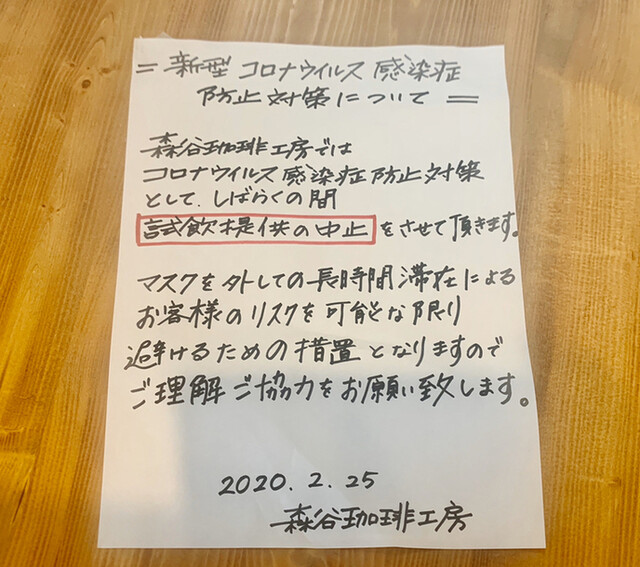 ＝新型コロナウイルス感染症
防止対策について＝
森谷珈琲工房では
コロナウイルス感染症防止対策
として、しばらくの間
試飲提供の中止をさせて頂きます。
マスクを外しての長時間滞在による
お客様のリスクを可能な限り
避けるための措置となりますので
ご理解ご協力をお願い致します。
2020.2.25
森谷珈琲工房